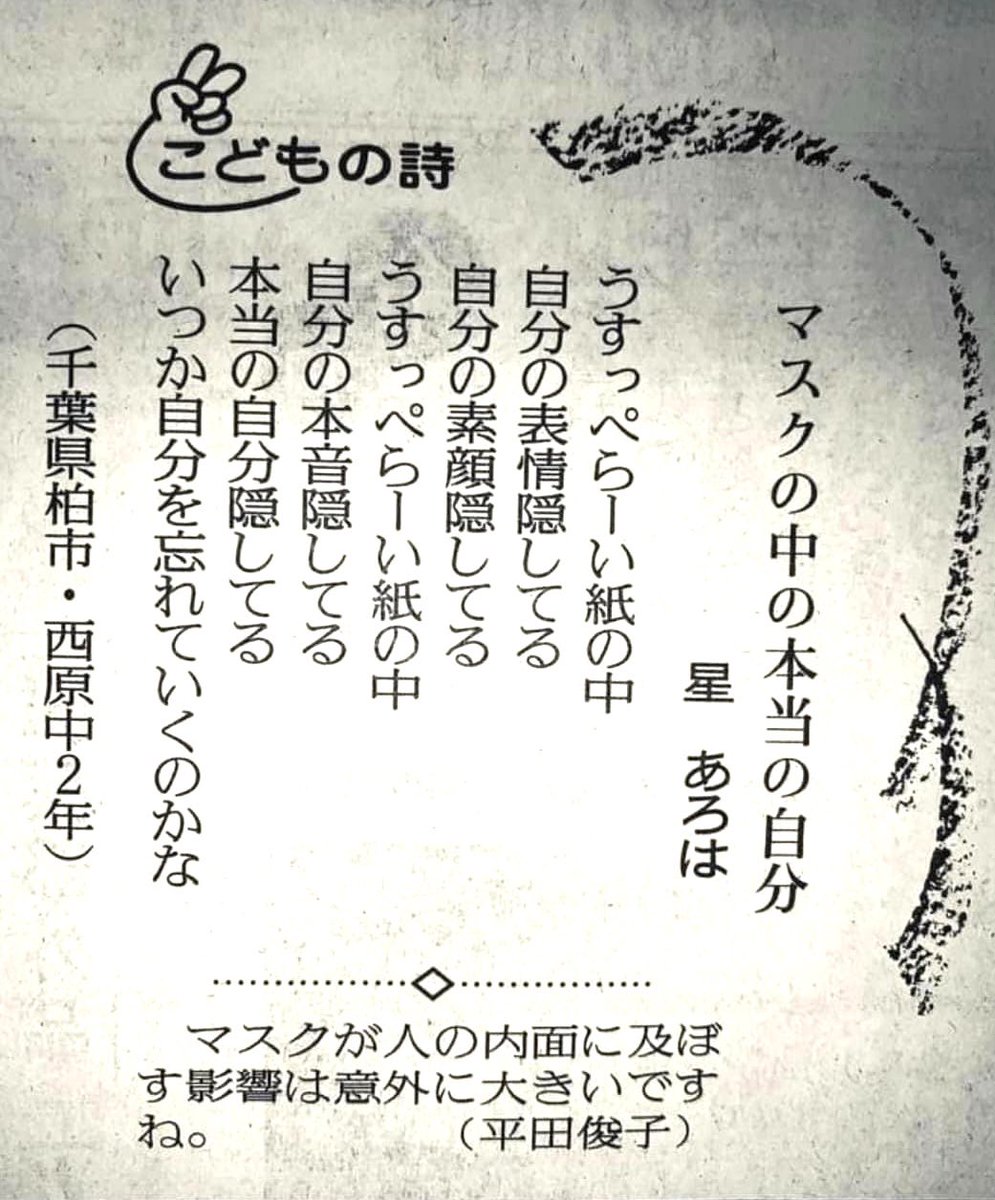 こどもの詩
マスクの中の本当の自分
星　あろは
うすっぺらーい紙の中
自分の表情隠してる
自分の素顔隠してる
うすっぺらーい紙の中
自分の本音隠してる
本当の自分隠してる
いつか自分を忘れていくのかな
（千葉県柏市・西原中２年）
マスクが人の内面に及ぼ
す影響は意外に大きいです
ね。　　　　　（平田俊子）